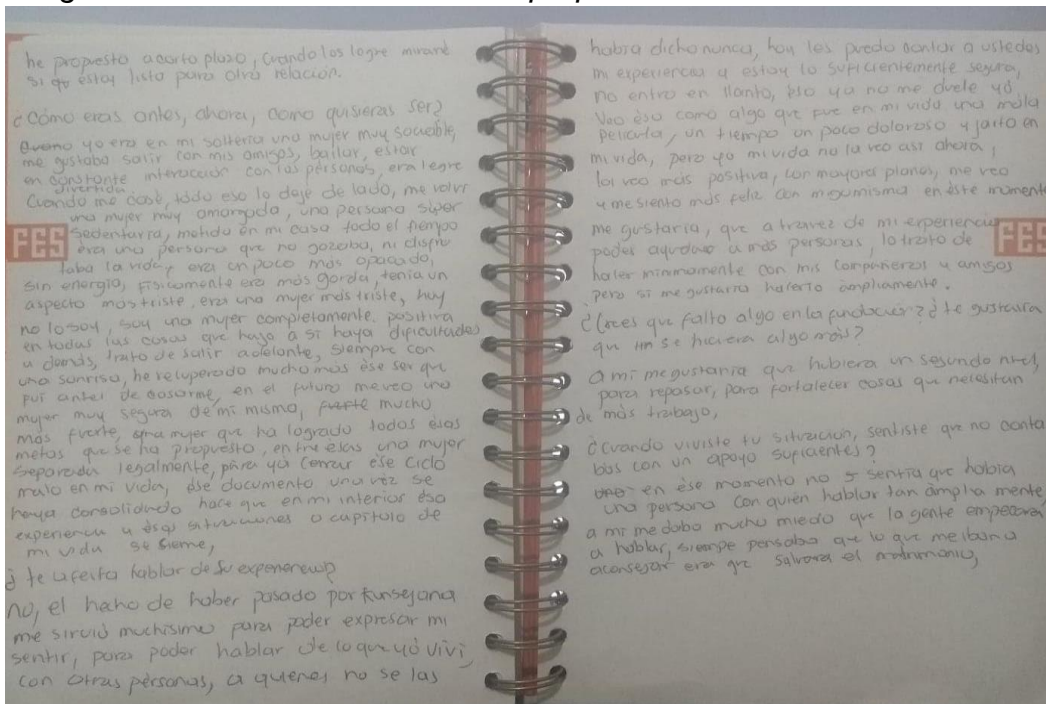 he propuesto a corto plazo, cuando los logre miraré
si estoy lista para otra relación.
¿Cómo eras antes, ahora, como quisieras ser?
yo era en mi soltería una mujer muy sociable,
me gustaba salir con mis amigos, bailar, estar
en constante interacción con las personas, era alegre
divertida
Cuando me casé, todo eso lo dejé de lado, me volví
una mujer muy amargada, una persona súper
FES
sedentaria, metida en mi casa todo el tiempo
era una persona que no gozaba, ni disfru
taba la vida, era un poco más opacada,
sin energía, físicamente era más gorda, tenía un
aspecto mas triste, era una mujer más triste, hoy
no lo soy, soy una mujer completamente positiva
en todas las cosas que hago a si haya dificultades
a demás, trato de salir adelante, siempre con
una sonrisa, he recuperado mucho más ése ser que
fui antes de casarme, en el futuro me veo una
mujer muy segura de mi misma, fuerte mucho
más fuerte, una mujer que ha logrado todas esas
metas que se ha propuesto, entre ellas una mujer
separada legalmente, para ya cerrar ése ciclo
malo en mi vida, ése documento una vez se
haya consolidado hace que en mi interior ésa
experiencia y ésas situaciones o capitulo de
mi vida se cierre,
¿te afecta hablar de su experiencia?
no, el hecho de haber pasado por
me sirvió muchísimo para poder expresar mi
sentir, para poder hablar de lo que yo viví,
con otras personas, a quienes no se las
había dicho nunca, hoy les puedo contar a ustedes
mi experiencia y estoy lo suficientemente segura,
no entro en llanto, eso ya no me duele yá
Veo ésa como algo que fue en mi vida una mala
pelicula, un tiempo un poco doloroso y jarto en
mi vida, pero yo mi vida no la veo asi ahora,
la veo más positiva, con mayores planes, me veo
y me siento más feliz con migo misma en éste momento
me gustaría, que a travez de mi experiencia
FES
poder ayudar a más personas, lo trato de
hacer minimamente con mis compañeros y amigos
pero si me gustaría hacerlo ampliamente.
¿Crees que falto algo en la fundación? ¿te gustaría
que se hiciera algo más?
a mi me gustaría que hubiera un segundo nivel,
para repasar, para fortalecer cosas que necesitan
de más trabajo,
¿cuando viviste tu situación, sentiste que no conta
bas con un apoyo suficientes?
en ése momento no sentía que había
una persona con quién hablar tan ámplia mente
a mi me daba mucho miedo que la gente empezara
a hablar, siempre pensaba que lo que me iban a
aconsejar era que salvara el matrimonio,